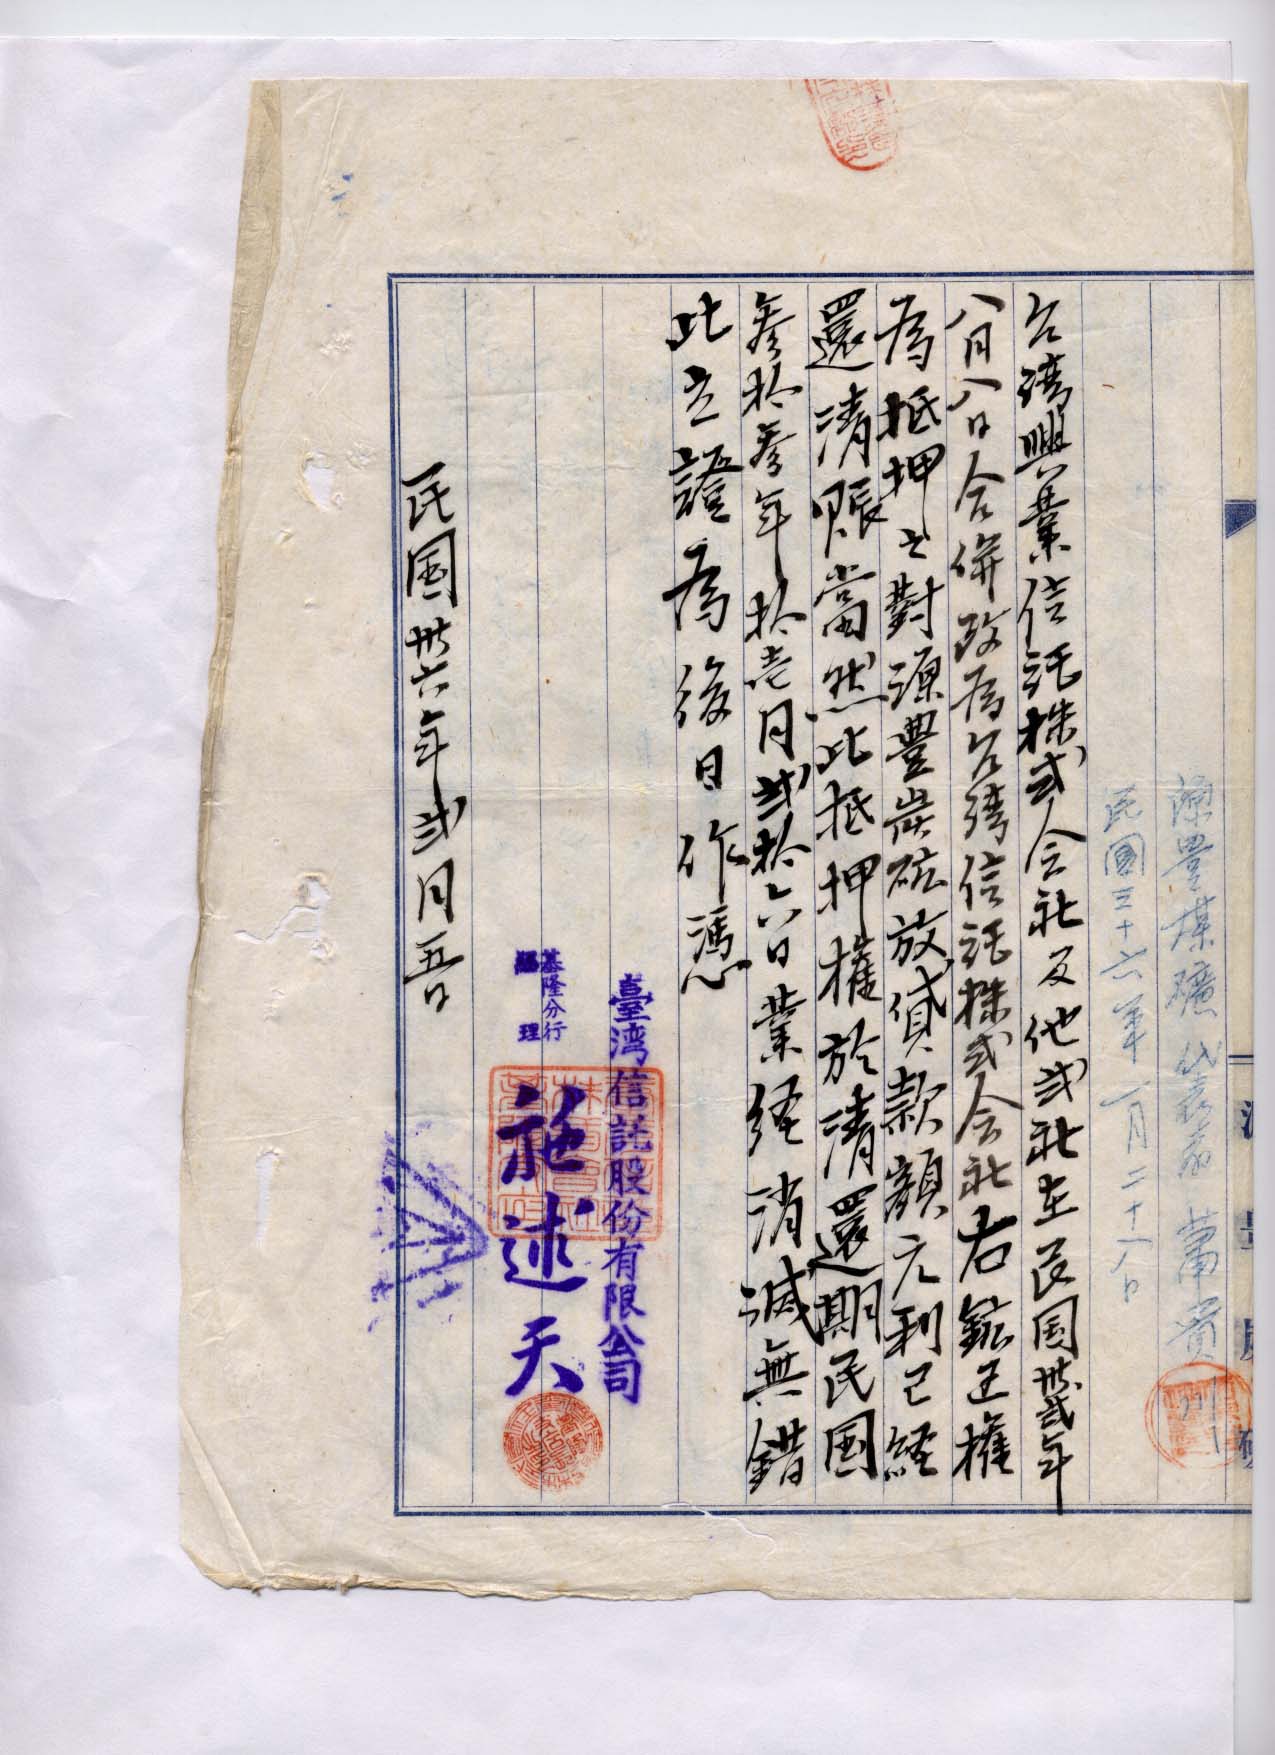 源豊煤礦代表者 蕭賞
民國三十六年一月二十八日
台湾興業信託株式会社及他弍社在民国卅弍年
八月八日合併改為台湾信託株式会社右鉱正権
為抵押之對源豊炭砿放貸款額元利已経
還清賬當然此抵押權於清還期民国
参拾参年拾壱月弍拾六日業経消滅無錯
此立證為後日作憑
臺湾信託股份有限公司
基隆分行
經理
施述天
民国卅六年弍月五日